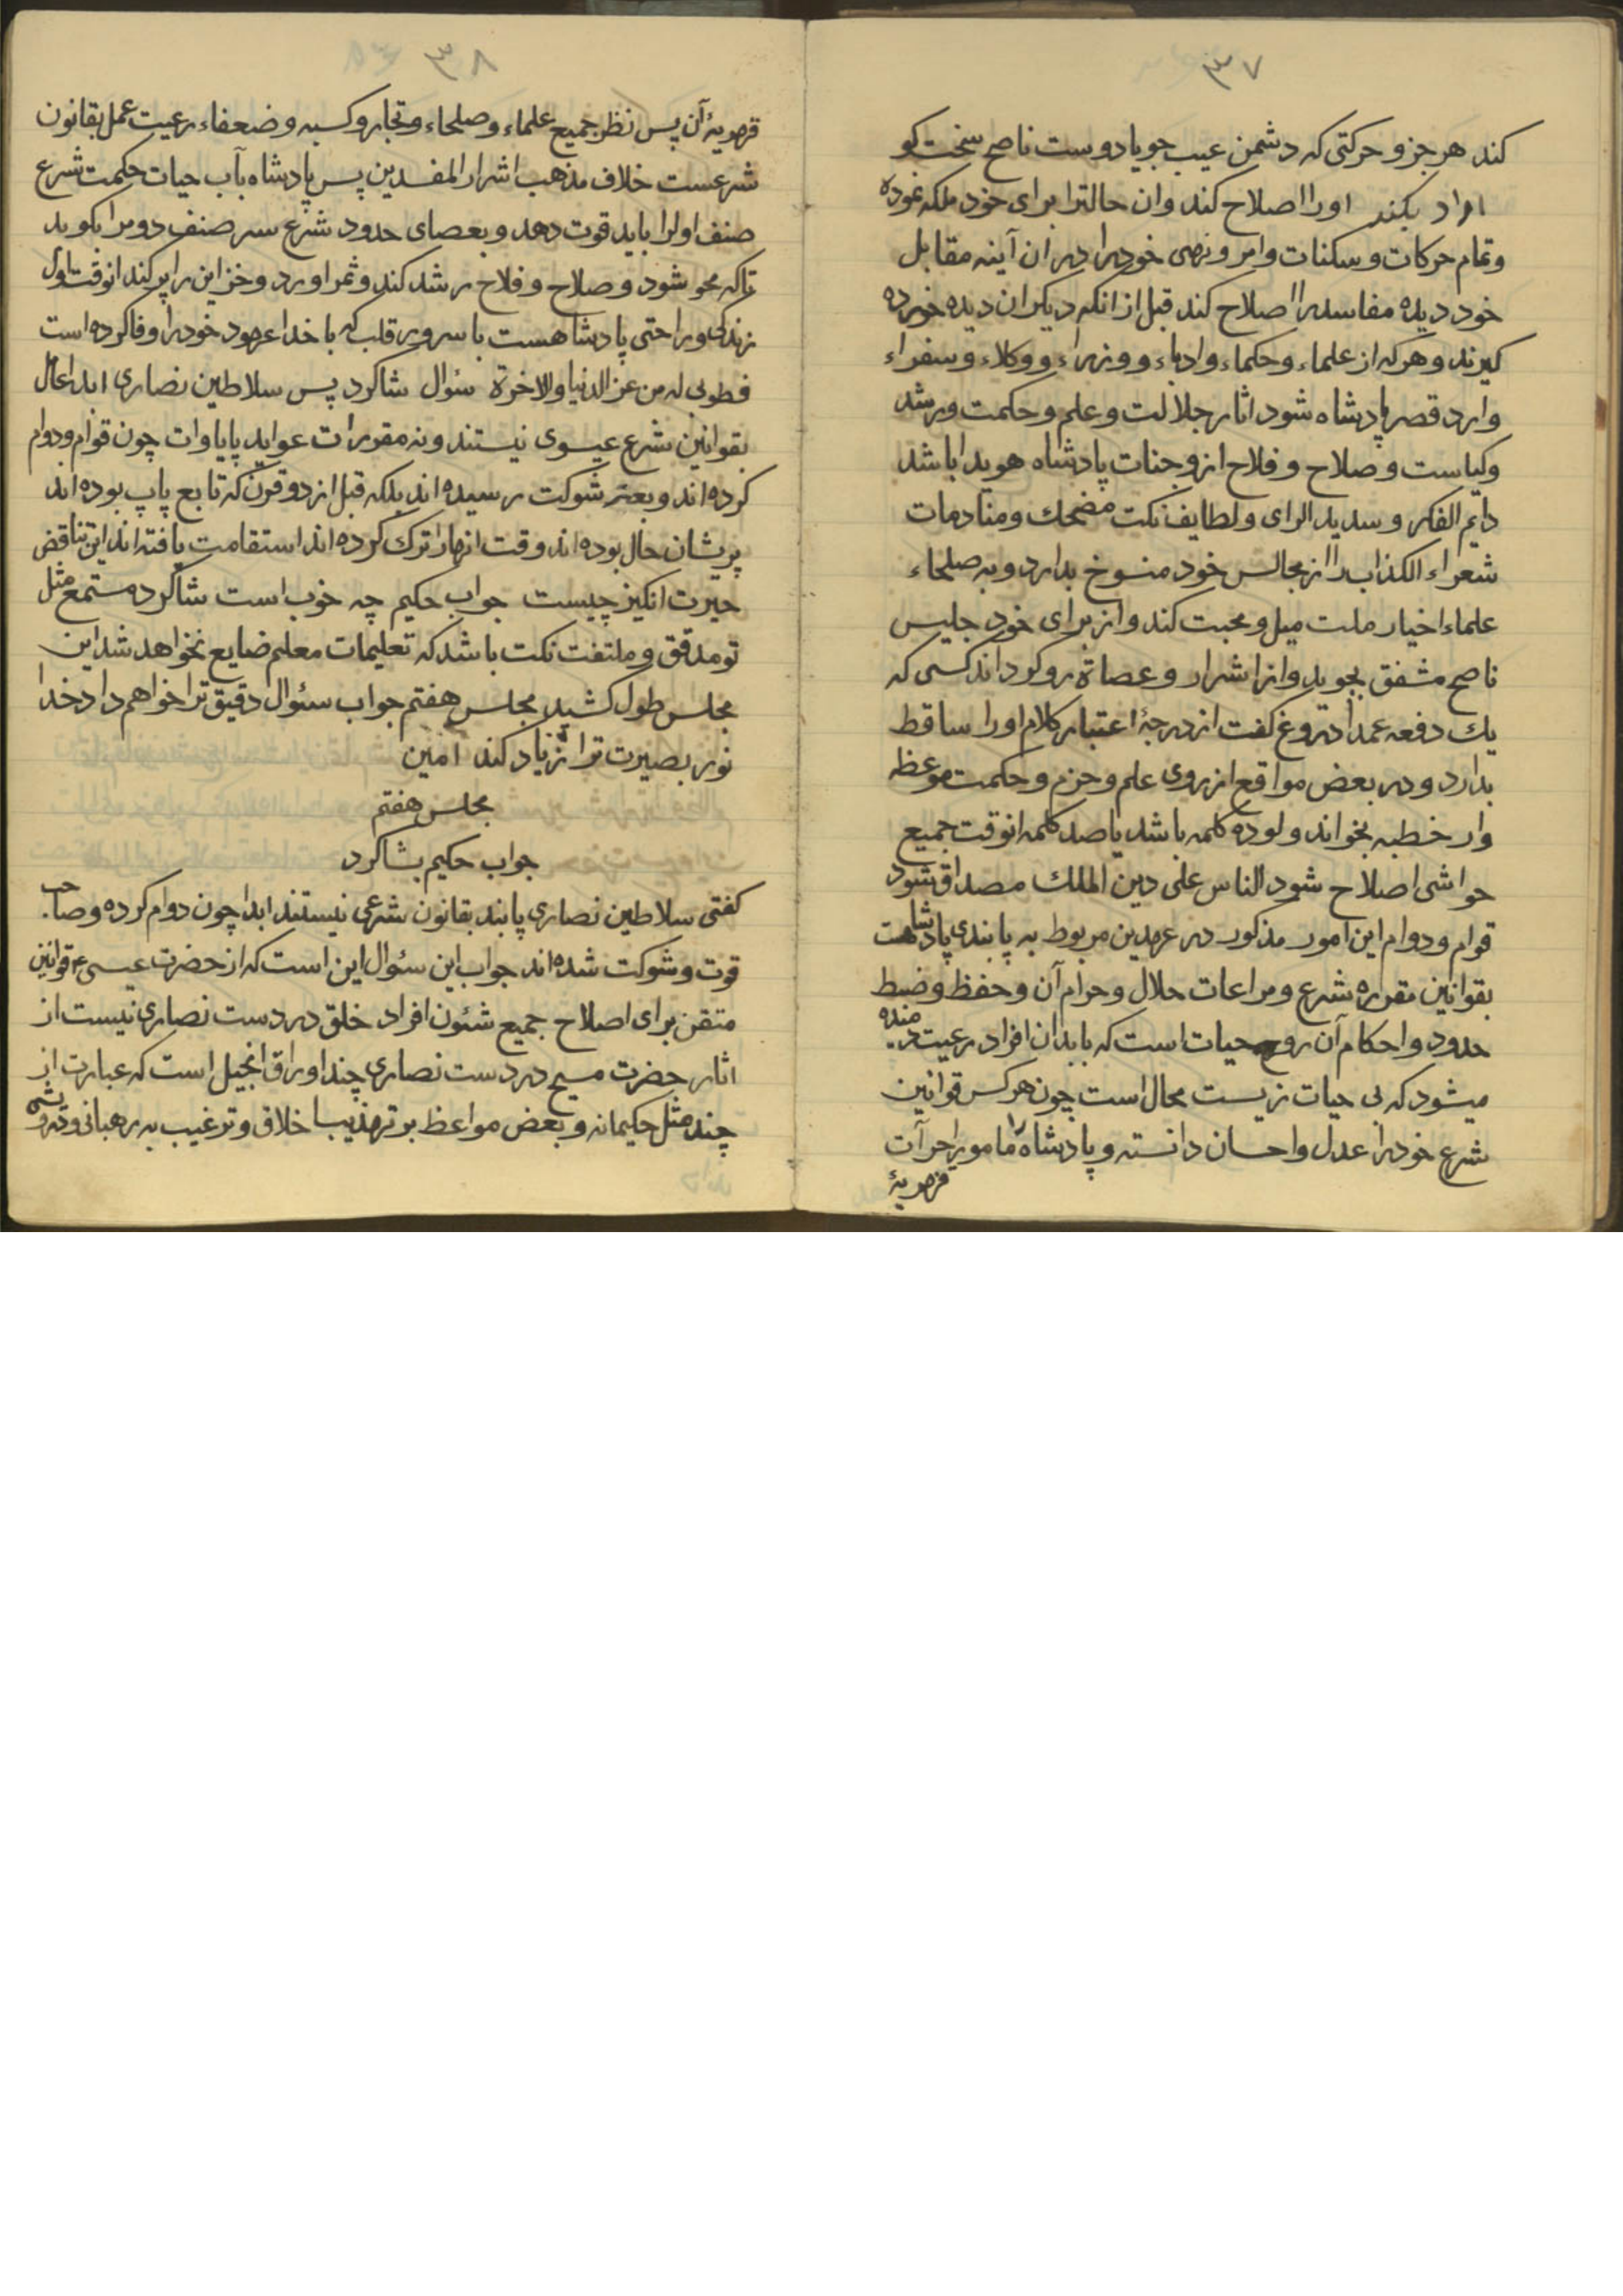 ۳۷
کند هر جزو حرکتی که دشمن عیب جو یا دوست ناصح سخت کو
ایراد بکند اورا اصلاح کند وان حالترا برای خود ملکه نموده
وتمام حرکات و سکنات وامر ونهی خودرا در ان آینه مقابل
خود دیده مفاسدرا اصلاح کند قبل از انکه دیکران دیده خورده
کیرند و هر که از علماء وحکماء وادباء ووزراء ووکلاء وسفراء
وارد قصر پادشاه شود اثار جلالت وعلم وحکمت ورشد
وکیاست وصلاح وفلاح از وجنات پادشاه هویدا باشد
دایم الفکر وسدید الرای ولطایف نکت مضحك ومنادمات
شعراء الکذابرا از مجالس خود منسوخ بدارد وبه صلحاء
علماء اخیار ملت میل ومحبت کند واز برای خود جلیس
ناصح مشفق بجوید واز اشرار وعصاة رو کرداند کسی که
یك دفعه عمدا دروغ کفت از درجهٔ اعتبار کلام اورا ساقط
بدارد ودر بعض مواقع از روی علم وحزم وحکمت موعظه
وار خطبه بخواند ولو ده کلمه باشد یا صد کلمه انوقت جمیع
حواشی اصلاح شود الناس علی دین الملك مصداق شود
قوام ودوام این امور مذکور در عهدین مربوط به پابندی پادشاهست
بقوانین مقرره شرع ومراعات حلال وحرام آن وحفظ وضبط
حدود واحکام آن روح حیات است که بابدان افراد رعیت دمیده
میشود که بی حیات زیست محال است چون هر کس قوانین
شرع خودرا عدل واحسان دانسته وپادشاه را مامور اجراآت
قهریهٔ
۳۸
قهریهٔ آن پس نظر جمیع علماء وصلحاء وتجار وکسبه وضعفاء رعیت عمل بقانون
شرعست خلاف مذهب اشرار المفسدین پس پادشاه بآب حیات حکمت شرع
صنف اولرا باید قوت دهد وبعصای حدود شرع سر صنف دومرا بکوبد
تاکه محو شود وصلاح وفلاح رشد کند وثمر اورد وخزاین را پر کند انوقت اول
زندکی وراحتی پادشاهست با سرور قلب که با خدا عهود خودرا وفا کرده است
فطوبی له من عز الدنیا والاخرة سئوال شاکرد پس سلاطین نصاری ابدا عامل
بقوانین شرع عیسوی نیستند ونه مقررات عواید پاپاوات چون قوام ودوام
کرده اند وبعز شوکت رسیده اند بلکه قبل از دو قرن که تابع پاپ بوده اند
پریشان حال بوده اند وقت انهارا ترك کرده اند استقامت یافته اند این تناقض
حیرت انکیز چیست جواب حکیم چه خوب است شاکرد مستمع مثل
تو مدقق وملتفت نکت باشد که تعلیمات معلم ضایع نخواهد شد این
مجلس طول کشید مجلس هفتم جواب سئوال دقیق ترا خواهم داد خدا
نور بصیرت ترا زیاد کند امین
مجلس هفتم
جواب حکیم بشاکرد
کفتی سلاطین نصاری پابند بقانون شرعی نیستند ابدا چون دوام کرده وصاحب
قوت وشوکت شده اند جواب این سئوال این است که از حضرت عیسی ع قوانین
متقن برای اصلاح جمیع شئون افراد خلق در دست نصاری نیست از
اثار حضرت مسیح در دست نصاری چند اوراق انجیل است که عبارت از
چند مثل حکیمانه وبعض مواعظ بر تهذیب اخلاق وترغیب به رهبانی ودرویشی